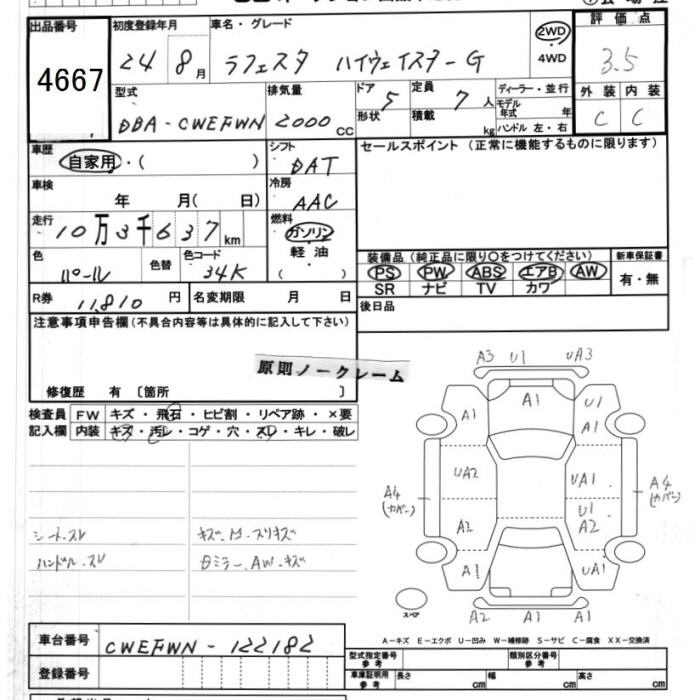 出品番号
4667
初度登録年月
24 8月
車名・グレード
ラフェスタ ハイウェイスターG
2WD
4WD
評価点
3.5
外装 内装
C C
型式
DBA-CWEFWN
排気量
2000 CC
ドア形状
5
定員
7人
積載
kg
ディーラー・並行
モデル年式 年
ハンドル 左・右
車歴
自家用・( )
シフト
DAT
セールスポイント (正常に機能するものに限ります)
車検
年 月( 日)
冷房
AAC
走行
10万3千637km
燃料
ガソリン
軽油
( )
色
パール
色替
色コード
34K
装備品 (純正品に限り○をつけてください)
新車保証書
PS PW ABS エアB AW
SR ナビ TV カワ
有・無
R券
11,810円
名変期限 月 日
後日品
注意事項申告欄(不具合内容等は具体的に記入して下さい)
原則ノークレーム
修復歴 有 〔箇所 〕
検査員記入欄
FW キズ・飛石・ヒビ割・リペア跡・×要
内装 キズ・汚レ・コゲ・穴・スレ・キレ・破レ
シートスレ
ハンドル.スレ
日ミラー.AW.キズ
A3 U1 UA3
A1 A1 U1
A1
UA2 UA1
A4 (カバー) A4 (カバー)
U1
A2 A2
A1 A1 UA1
スペア
A2 A1 A1
A-キズ E-エクボ U-凹み W-補修跡 S-サビ C-腐食 XX-交換済
車台番号
CWEFWN-122182
登録番号
型式指定番号 参考
類別区分番号 参考
車庫証明用 参考
長さ cm 幅 cm 高さ cm